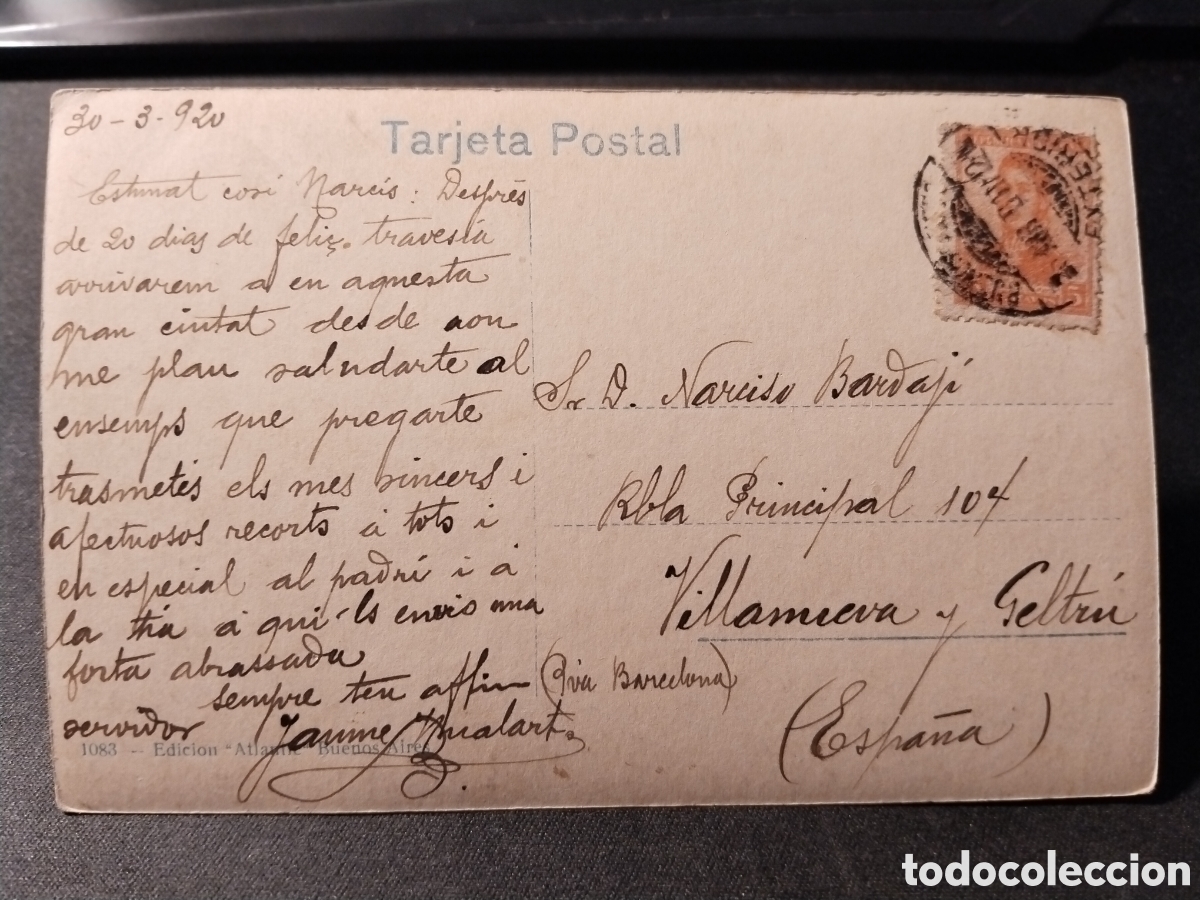 30-3-920
Tarjeta Postal
Estimat cosí Narcís: Desprês
de 20 dias de feliç travesía
arrivarem a en aquesta
gran ciutat desde aon
me plau saludarte al
ensemps que pregarte
trasmetés els mes sincers i
afectuosos recorts á tots i
en especial al padrí i á
la tia á qui ls envio una
forta abrassada
sempre teu affm
servidor Jaume
1083 – Edicion "Atlantic" Buenos Aires
EXTERIOR
Sr D. Narciso Bardají
Rbla Principal 104
Villanueva y Geltrú
(Via Barcelona)
(España)
todocoleccion